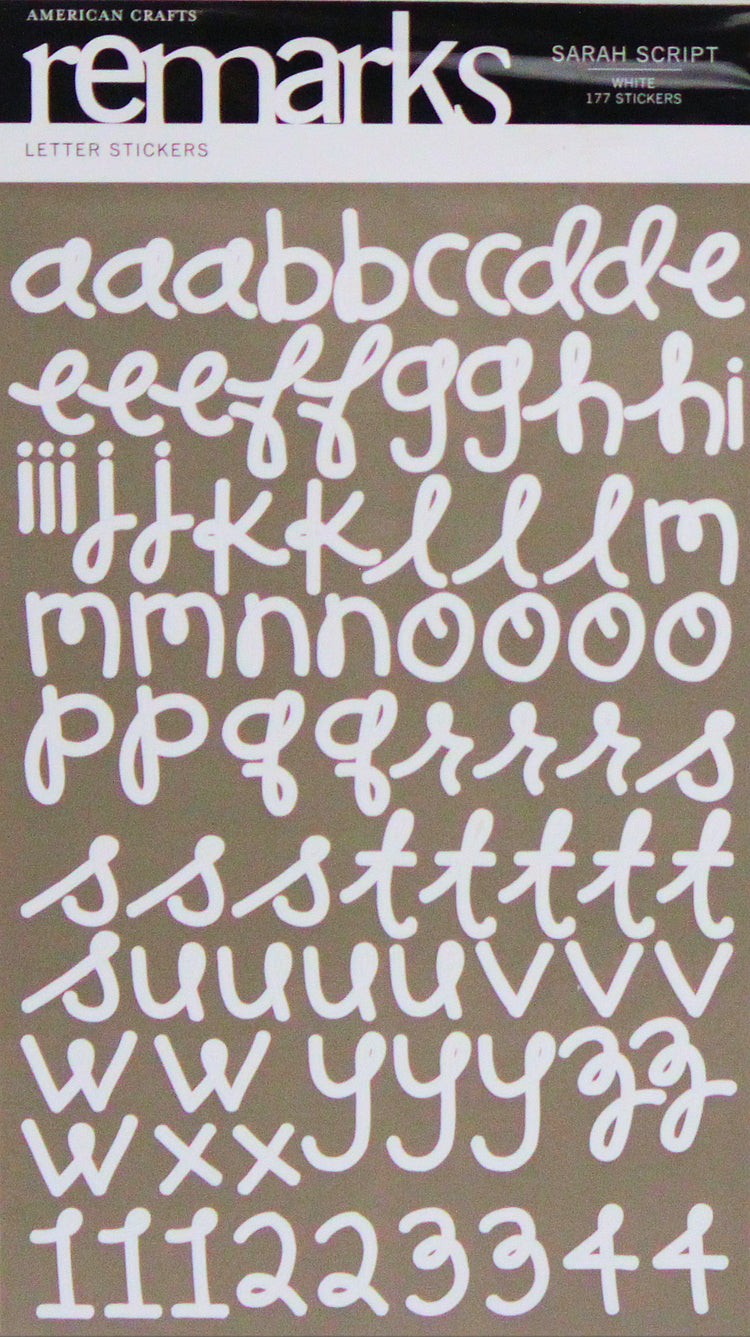 AMERICAN CRAFTS™
remarks
SARAH SCRIPT
WHITE
177 STICKERS
LETTER STICKERS
aaabbccdde
eeeffgghhi
iiijjkklllm
mmnnoooo
ppqqrrrs
sssttttt
suuuuvvv
wwyyyzz
wxx
111223344